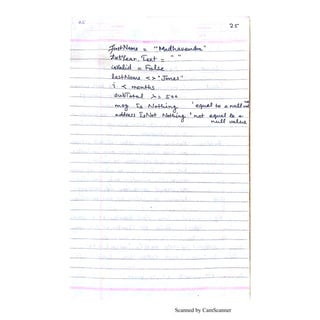 25
firstName = "Madhavendra"
txtYear.Text = " "
isValid = False
lastName <> "Jones"
i < months
subTotal >= 500
msg Is Nothing 'equal to a null val
address IsNot Nothing 'not equal to a
null value
Scanned by CamScanner